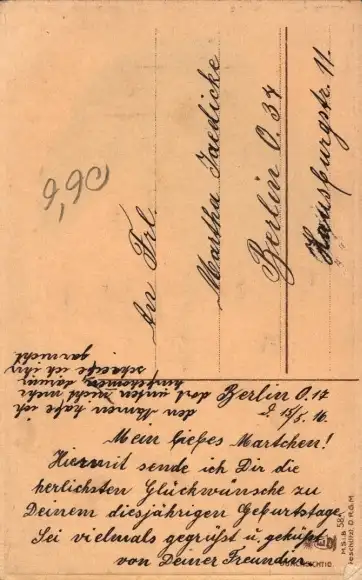 An Frl.
Martha Jaedicke
Berlin O. 34
Hausburgstr. 11.
6,90
Berlin O. 17
d. 15/5. 16.
Mein liebes Martchen!
Hiermit sende ich Dir die
herlichsten Glückwünsche zu
Deinem diesjährigen Geburtstage.
Sei vielmals gegrüßt u. geküßt
von Deiner Freundin.
den Namen habe ich
dort unten nicht mehr
darum
schreibe ich ihn
gar nicht
M.S.i.B. 584
Geschützt D.R.G.M.